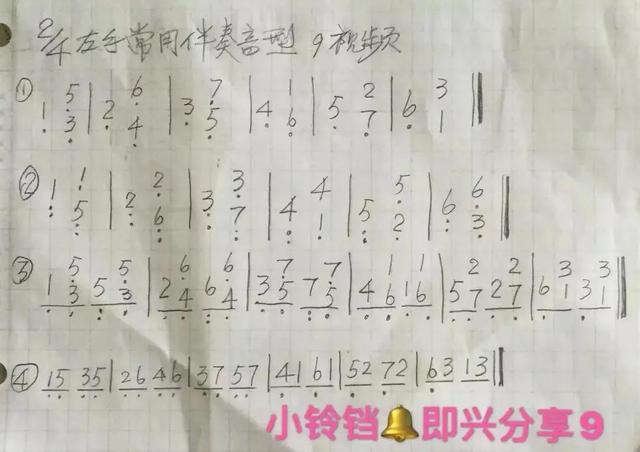 2/4左手常用伴奏音型 9视频
① 1 5 3 | 2 6 4 | 3 7 5 | 4 1 6 | 5 2 7 | 6 3 1 ‖
② 1 1 5 | 2 2 6 | 3 3 7 | 4 4 1 | 5 5 2 | 6 6 3 ‖
③ 1 5 3 5 5 3 | 2 6 4 6 6 4 | 3 7 5 7 7 5 | 4 1 6 1 1 6 | 5 2 7 2 2 7 | 6 3 1 3 3 1 ‖
④ 15 35 | 26 46 | 37 57 | 41 61 | 52 72 | 63 13 ‖
小铃铛🔔即兴分享9